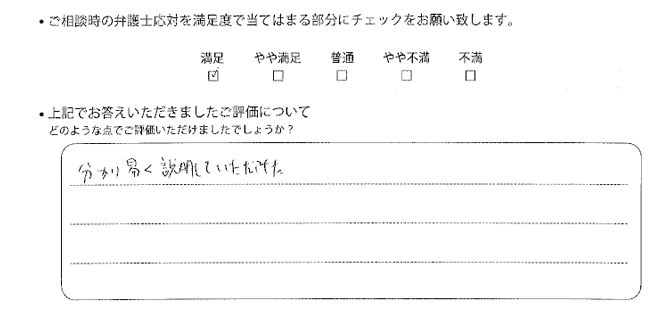 • ご相談時の弁護士応対を満足度で当てはまる部分にチェックをお願い致します。
満足 やや満足 普通 やや不満 不満
☑ □ □ □ □
• 上記でお答えいただきましたご評価について
どのような点でご評価いただけましたでしょうか?
分かり易く説明していただけた